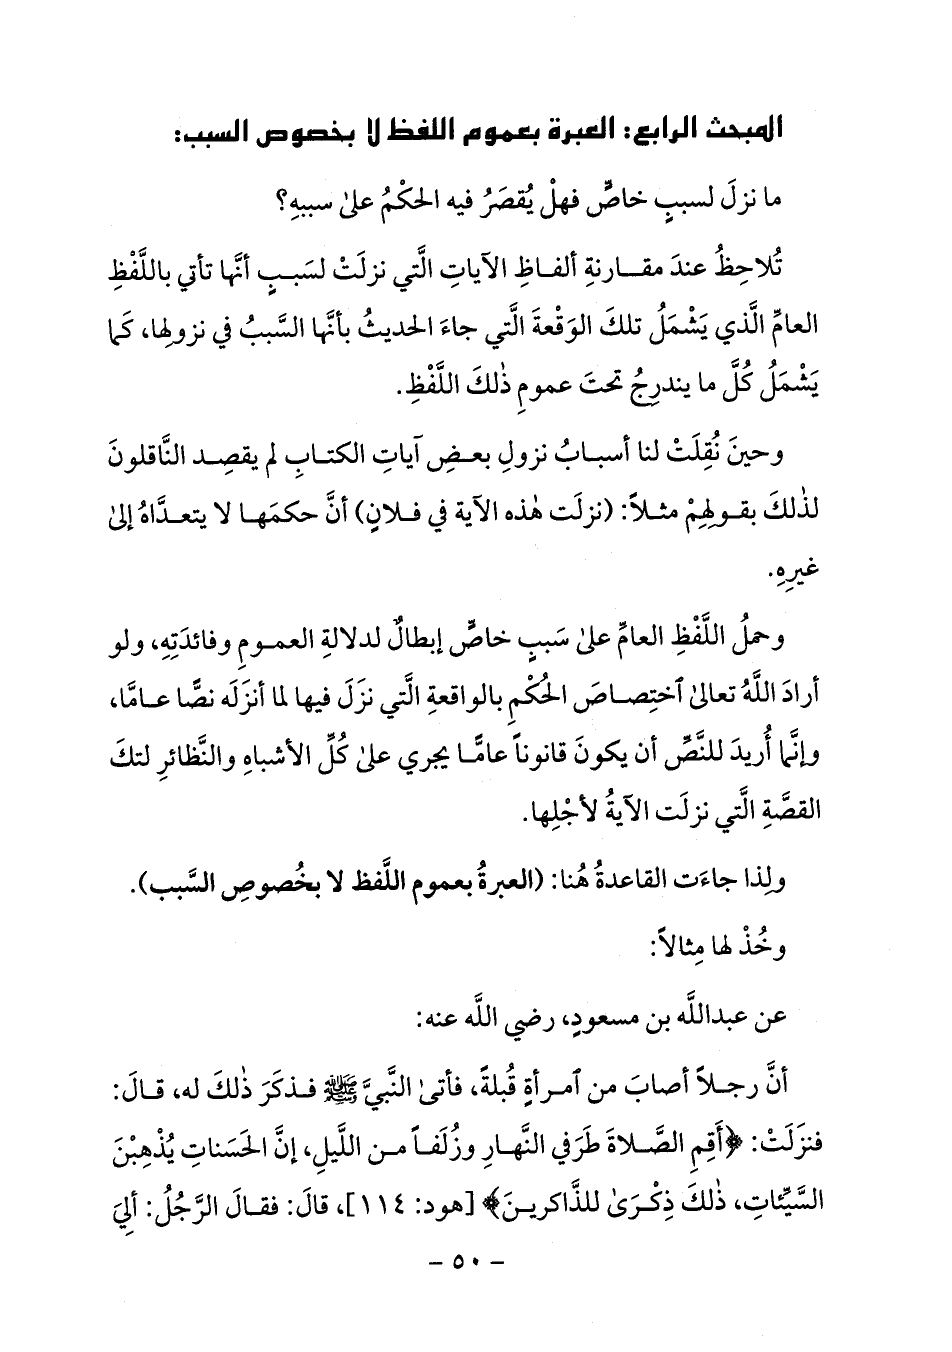 المبحث الرابع: العبرة بعموم اللفظ لا بخصوص السبب:
ما نزلَ لسببٍ خاصٍّ فهلْ يُقصَرُ فيه الحكْمُ علىٰ سببهِ؟
تُلاحِظُ عندَ مقارنةِ ألفاظِ الآياتِ الَّتي نزلَتْ لسَببٍ أنَّها تأتي باللَّفْظِ
العامِّ الَّذي يَشْمَلُ تلكَ الوَقْعةَ الَّتي جاءَ الحديثُ بأنَّها السَّببُ في نزولِها، كَما
يَشْمَلُ كُلَّ ما يندرِجُ تحتَ عمومِ ذٰلكَ اللَّفْظِ.
وحينَ نُقِلَتْ لنا أسبابُ نزولِ بعضِ آياتِ الكتابِ لم يقصِد النَّاقلونَ
لذٰلكَ بقولِهِمْ مثلاً: (نزلَت هٰذه الآية في فلانٍ) أنَّ حكمَها لا يتعدَّاهُ إلىٰ
غيرِهِ.
وحملُ اللَّفْظِ العامِّ علىٰ سَببٍ خاصٍّ إبطالٌ لدلالةِ العمومِ وفائدَتِهِ، ولو
أرادَ اللَّهُ تعالىٰ ٱختِصاصَ الحُكْمِ بالواقعةِ الَّتي نزَلَ فيها لما أنزَلَه نصًّا عامًّا،
وإنَّما أُريدَ للنَّصِّ أن يكونَ قانوناً عامًّا يجري علىٰ كُلِّ الأشباهِ والنَّظائرِ لتكَ
القصَّةِ الَّتي نزلَت الآيةُ لأجْلِها.
ولِذا جاءَت القاعدةُ هُنا: (العبرةُ بعموم اللَّفظ لا بخُصوصِ السَّبب).
وخُذْ لها مِثالاً:
عن عبداللَّه بن مسعودٍ، رضي اللَّه عنه:
أنَّ رجلاً أصابَ من ٱمرأةٍ قُبلةً، فأتىٰ النَّبيَّ ﷺ فذكَرَ ذٰلكَ له، قالَ:
فنزَلَتْ: ﴿أَقِمِ الصَّلاةَ طَرَفي النَّهارِ وزُلَفاً من اللَّيلِ، إنَّ الحَسَناتِ يُذْهِبْنَ
السَّيِّئاتِ، ذٰلكَ ذِكْرَىٰ للذَّاكرينَ﴾ [هود: ١١٤]، قالَ: فقالَ الرَّجُلُ: أَلِيَ
- ٥٠ -